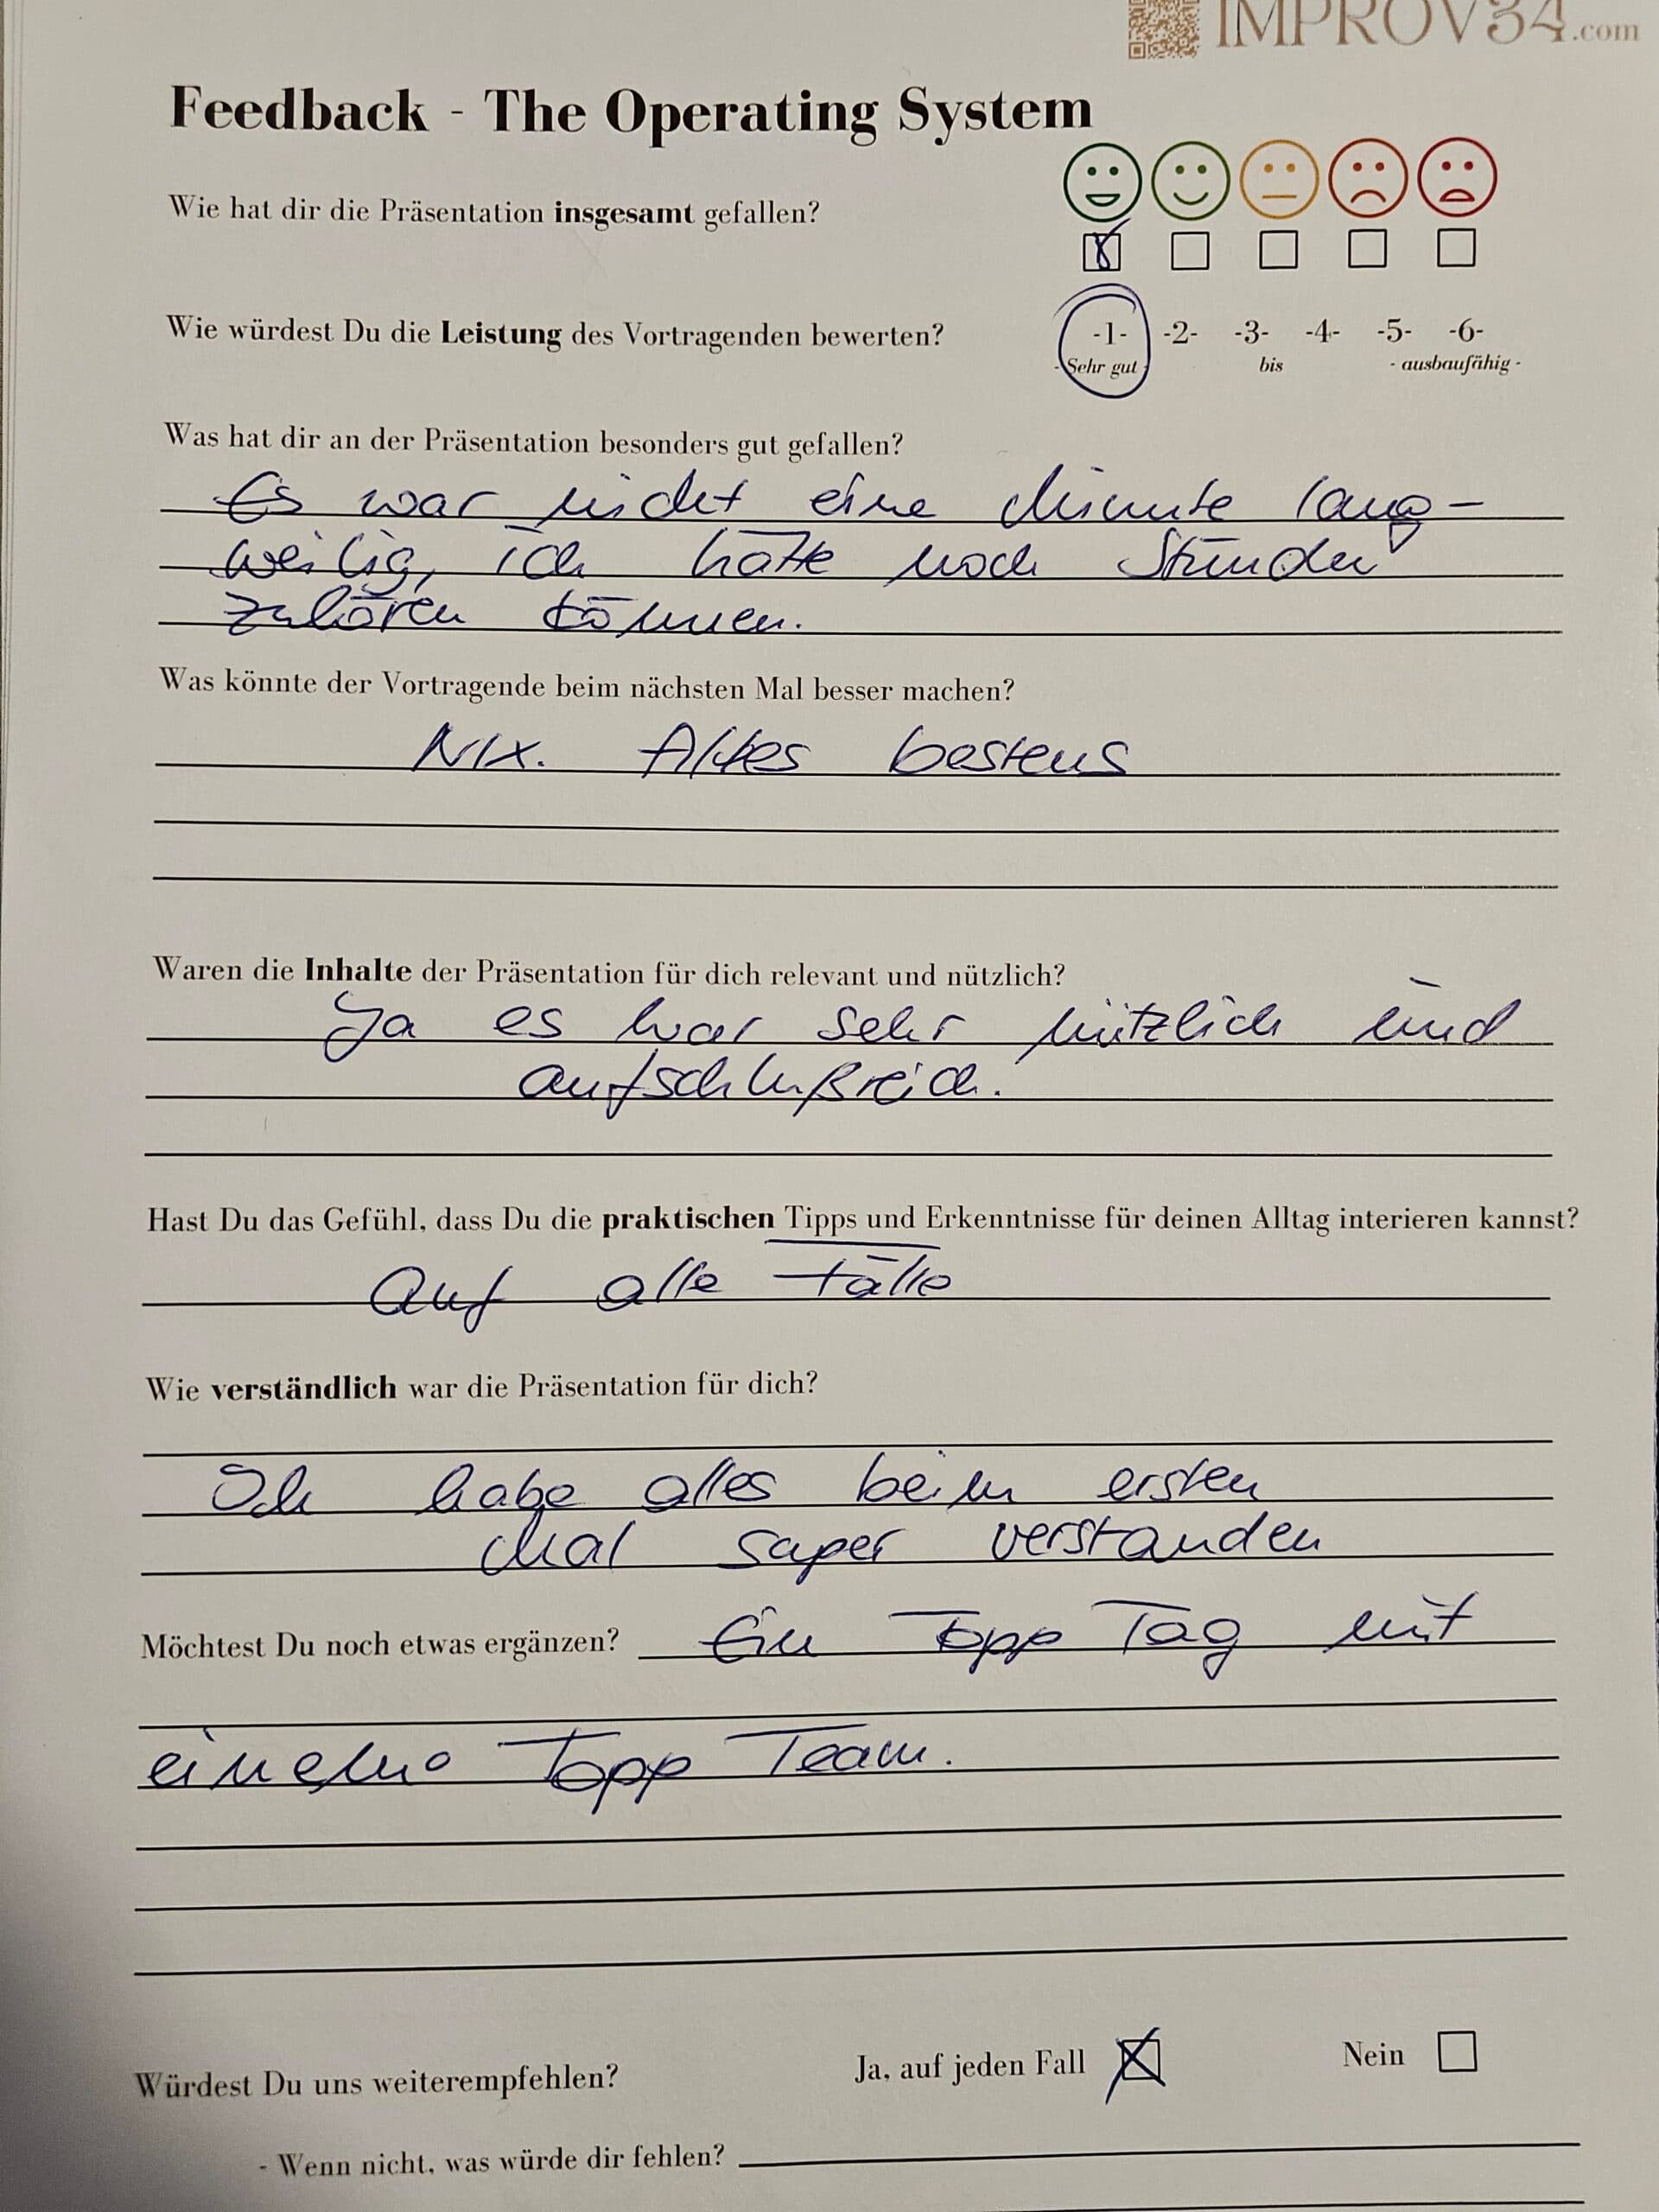 IMPROV34.com
Feedback - The Operating System
Wie hat dir die Präsentation insgesamt gefallen?
Wie würdest Du die Leistung des Vortragenden bewerten? -1- -2- -3- -4- -5- -6-
- Sehr gut - bis - ausbaufähig -
Was hat dir an der Präsentation besonders gut gefallen?
Es war nicht eine Minute lang-
weilig, ich hätte noch Stunden
zuhören können.
Was könnte der Vortragende beim nächsten Mal besser machen?
Nix. Alles bestens
Waren die Inhalte der Präsentation für dich relevant und nützlich?
Ja es war sehr nützlich und
aufschlußreich.
Hast Du das Gefühl, dass Du die praktischen Tipps und Erkenntnisse für deinen Alltag interieren kannst?
Auf alle Fälle
Wie verständlich war die Präsentation für dich?
Ich habe alles beim ersten
Mal super verstanden
Möchtest Du noch etwas ergänzen? Ein Topp Tag mit
einem Topp Team.
Würdest Du uns weiterempfehlen? Ja, auf jeden Fall Nein
- Wenn nicht, was würde dir fehlen?